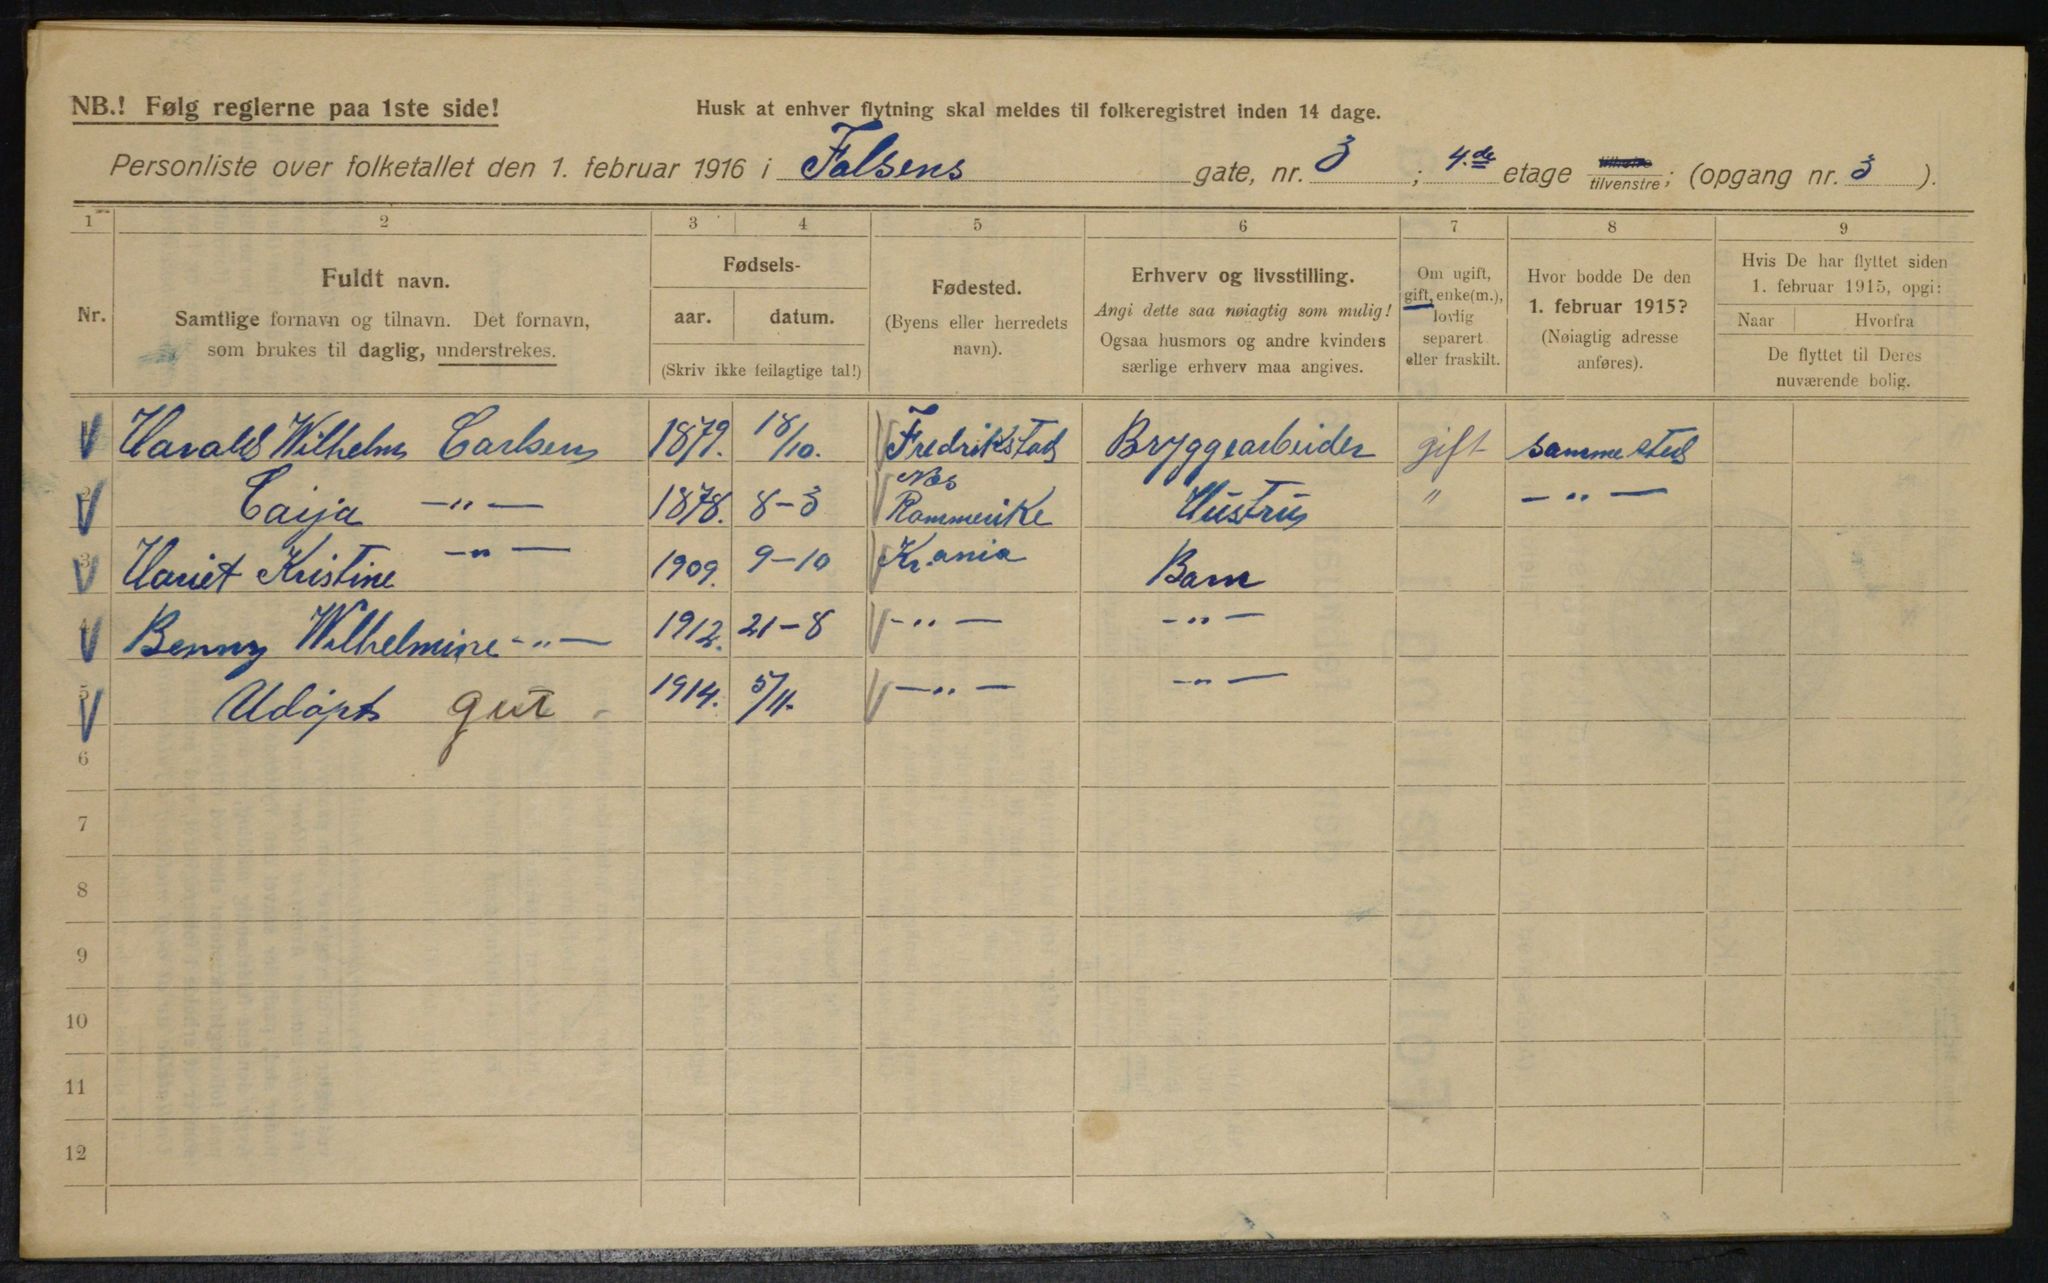 NB.! Følg reglerne paa 1ste side!
Husk at enhver flytning skal meldes til folkeregistret inden 14 dage.
Personliste over folketallet den 1. februar 1916 i Falsens gate, nr. 3 ; 4.de etage tilhøire tilvenstre; (opgang nr. 3 ).
1 2 3 4 5 6 7 8 9
Nr.
Fuldt navn.
Samtlige fornavn og tilnavn. Det fornavn,
som brukes til daglig, understrekes.
Fødsels-
aar. datum.
(Skriv ikke feilagtige tal!)
Fødested.
(Byens eller herredets
navn).
Erhverv og livsstilling.
Angi dette saa nøiagtig som mulig!
Ogsaa husmors og andre kvinders
særlige erhverv maa angives.
Om ugift,
gift, enke(m.),
lovlig
separert
eller fraskilt.
Hvor bodde De den
1. februar 1915?
(Nøiagtig adresse
anføres).
Hvis De har flyttet siden
1. februar 1915, opgi:
Naar Hvorfra
De flyttet til Deres
nuværende bolig.
Harald Wilhelm Carlsen 1879. 18/10. Fredrikstad Bryggearbeider gift sammested
2 Caija —"— 1878. 8-3 Nes Romerike Hustru " —"—
3 Hariet Kristine —"— 1909. 9-10 Kr.ania Barn
4 Benny Wilhelmine —"— 1912. 21-8 —"— —"—
5 Udøpt gut 1914. 5/11. —"— —"—
6
7
8
9
10
11
12